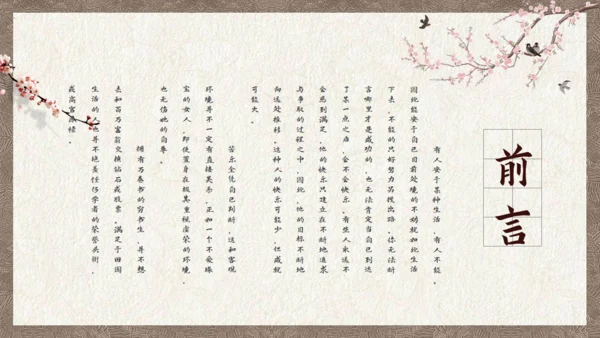 前言
有人安于某种生活，有人不能。
因此能安于自己目前处境的不妨就如此生活
下去，不能的只好努力另找出路。你无法断
言哪里才是成功的，也无法肯定当自己到达
了某一点之后，会不会快乐。有些人永远不
会感到满足，他的快乐只建立在不断地追求
与争取的过程之中，因此，他的目标不断地
向远处推移。这种人的快乐可能少，但成就
可能大。
苦乐全凭自己判断，这和客观
环境并不一定有直接关系，正如一个不爱珠
宝的女人，即使置身在极其重视虚荣的环境，
也无伤她的自尊。
拥有万卷书的穷书生，并不想
去和百万富翁交换钻石或股票。满足于田园
生活的人也并不艳羡任何学者的荣誉头衔，
或高官厚禄。